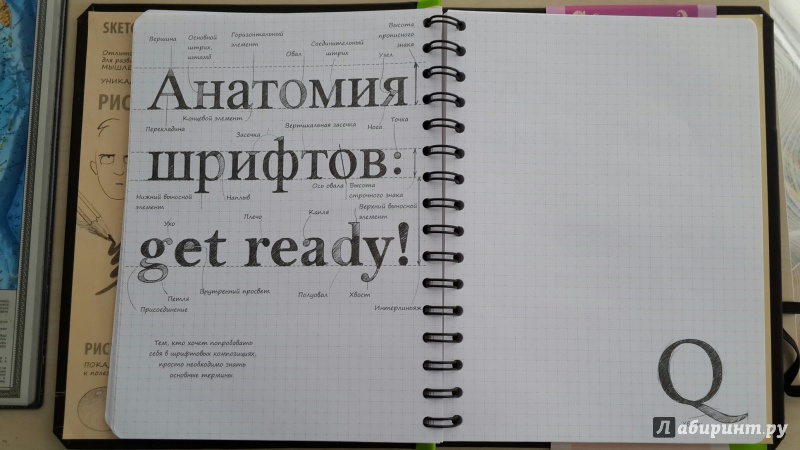 SKETC
Отличн
для разви
МЫШЛЕ
УНИКА
РИС
Вершина
Основной штрих, штамб
Горизонтальный элемент
Овал
Соединительный штрих
Высота прописного знака
Узел
Анатомия
Перекладина
Концевой элемент
Засечки
Вертикальная засечка
Нога
Точка
шрифтов:
Нижний выносной элемент
Наплыв
Ось овала
Высота строчного знака
Ухо
Плечо
Капля
Верхний выносной элемент
get ready!
Петля
Присоединение
Внутренний просвет
Полуовал
Хвост
Интерлиньяж
Тем, кто хочет попробовать
себя в шрифтовых композициях,
просто необходимо знать
основные термины.
РИС
ПОКА
к полез
Q
Лабиринт.ру